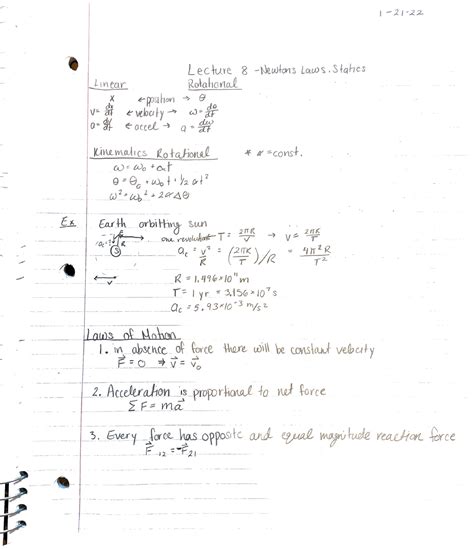 1-21-22
Lecture 8 - Newtons Laws. Statics
Linear Rotational
x ← position → θ
v = dx/dt ← velocity → ω = dθ/dt
a = dv/dt ← accel → α = dω/dt
Kinematics Rotational * α = const.
ω = ω₀ + αt
θ = θ₀ + ω₀t + 1/2 αt²
ω² = ω₀² + 2αΔθ
Ex Earth orbitting sun
one revolution T = 2πR/v → v = 2πR/T
a_c = v²/R = (2πR/T)²/R = 4π²R/T²
R = 1.496×10¹¹ m
T = 1 yr = 3.156×10⁷ s
a_c = 5.93×10⁻³ m/s²
Laws of Motion
1. in absence of force there will be constant velocity
F⃗ = 0 ⇒ v⃗ = v⃗₀
2. Acceleration is proportional to net force
ΣF = ma⃗
3. Every force has opposite and equal magnitude reaction force
F⃗₁₂ = -F⃗₂₁